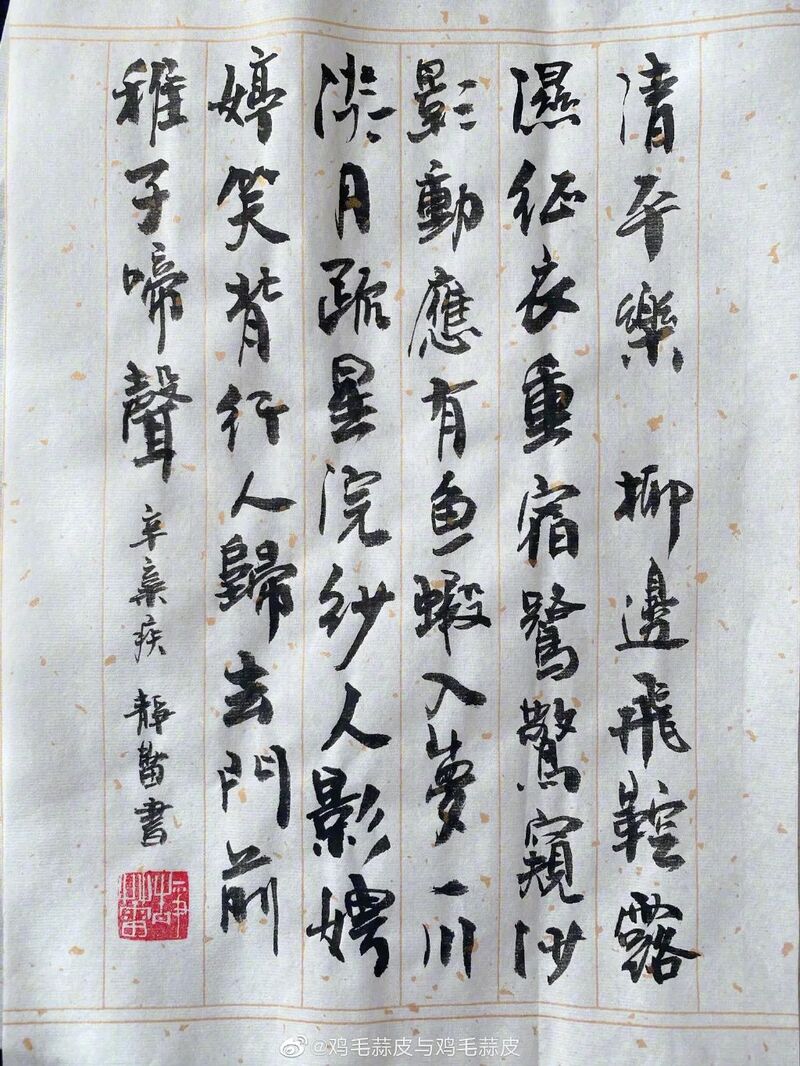 清平樂 柳邊飛鞚露
濕征衣重宿鷺驚窺沙
影動應有鱼蝦入夢一川
淡月疏星浣紗人影娉
婷笑背行人歸去門前
稚子啼聲 辛棄疾 靜書
@鸡毛蒜皮与鸡毛蒜皮